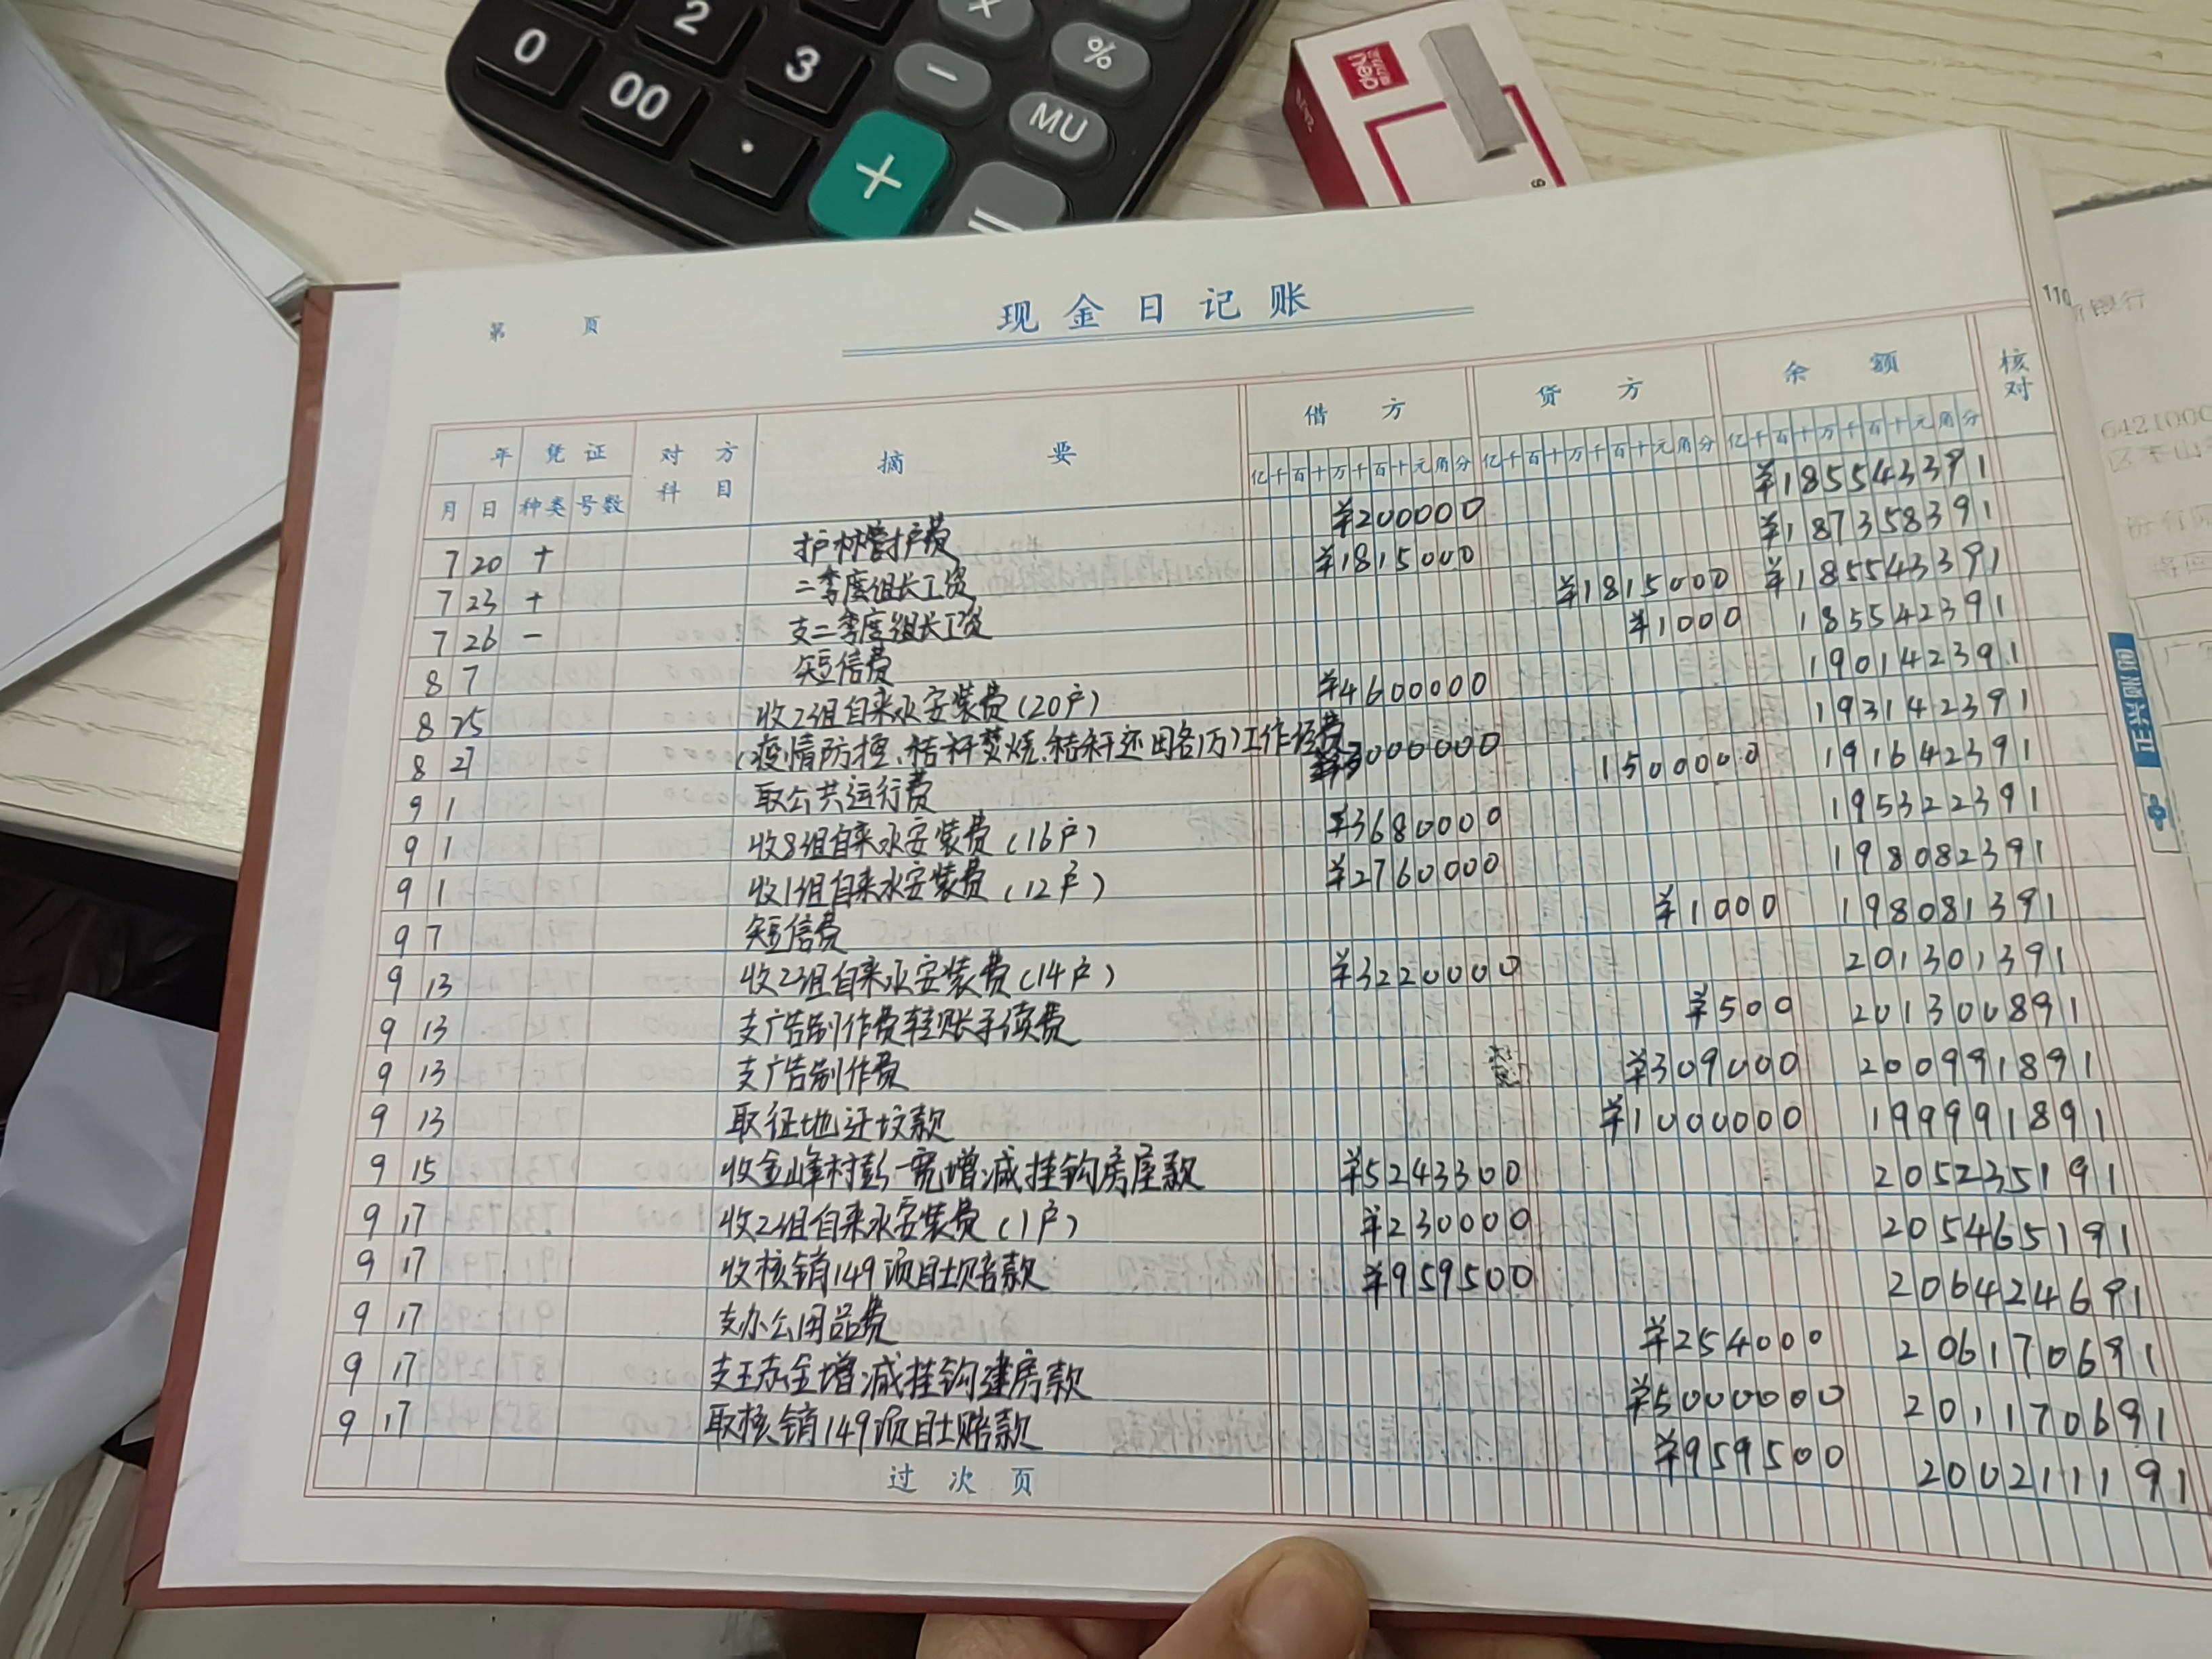 0 00 · 2 3 × − + = % MU
deli
第 页
现金日记账
110
银行
642100
年 凭证 对方 摘要 借方 贷方 余额 核对
月 日 种类 号数 科目 亿千百十万千百十元角分 亿千百十万千百十元角分 亿千百十万千百十元角分
7 20 + 护林管护费 ¥200000 ¥185543391
7 23 + 二季度组长工资 ¥1815000 ¥187358391
7 26 − 支二季度组长工资 ¥1815000 ¥185543391
8 7 短信费 ¥1000 185542391
8 25 收2组自来水安装费(20户) ¥4600000 190142391
8 27 (疫情防控、秸秆焚烧、秸秆还田各1万)工作经费 ¥3000000 193142391
9 1 取公共运行费 1500000 191642391
9 1 收8组自来水安装费(16户) ¥3680000 195322391
9 1 收1组自来水安装费(12户) ¥2760000 198082391
9 7 短信费 ¥1000 198081391
9 13 收2组自来水安装费(14户) ¥3220000 201301391
9 13 支广告制作费转账手续费 ¥500 201300891
9 13 支广告制作费 ¥309000 200991891
9 13 取征地迁坟款 ¥1000000 199991891
9 15 收金峰村彭一宽增减挂钩房屋款 ¥5243300 205235191
9 17 收2组自来水安装费(1户) ¥230000 205465191
9 17 收核销149项目土赔款 ¥959500 206424691
9 17 支办公用品费 ¥254000 206170691
9 17 支王志全增减挂钩建房款 ¥5000000 201170691
9 17 取核销149项目土赔款 ¥959500 200211191
过次页